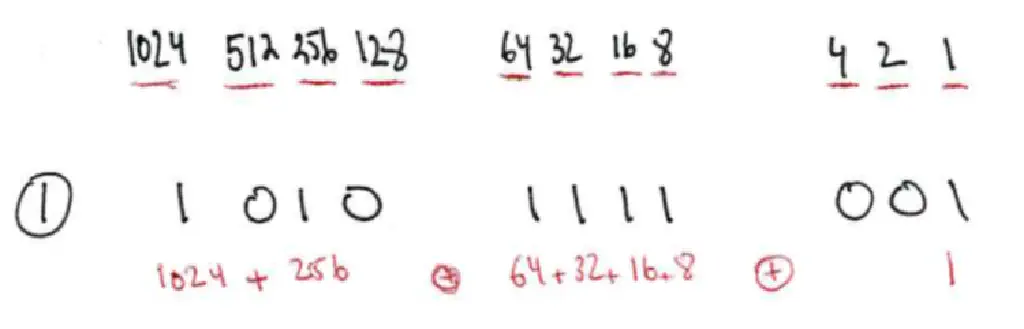 1024 512 256 128 64 32 16 8 4 2 1
① 1 0 1 0 1 1 1 1 0 0 1
1024 + 256 ⊕ 64+32+16+8 ⊕ 1